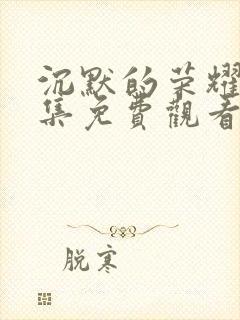 沉默的荣耀
集免費觀看
脱寒